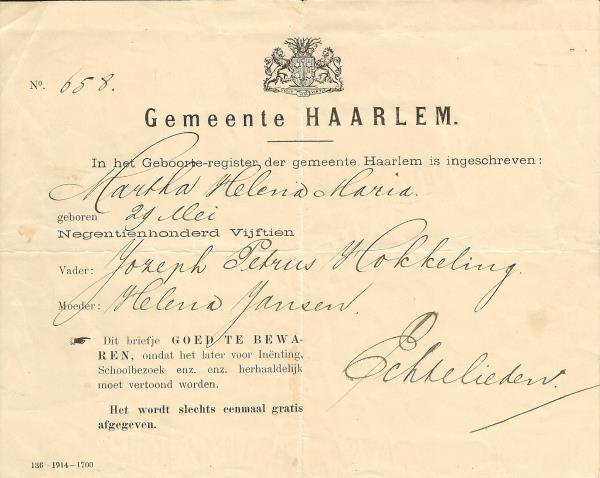 No. 658.
Gemeente HAARLEM.
In het Geboorte-register der gemeente Haarlem is ingeschreven:
Martha Helena Maria.
geboren 29 Mei
Negentienhonderd Vijftien
Vader: Jozeph Petrus Hokkeling.
Moeder: Helena Jansen.
Dit briefje GOED TE BEWA-
REN, omdat het later voor Inënting,
Schoolbezoek enz. enz. herhaaldelijk
moet vertoond worden.
Het wordt slechts eenmaal gratis
afgegeven.
Echtelieden.
136-1914-1700